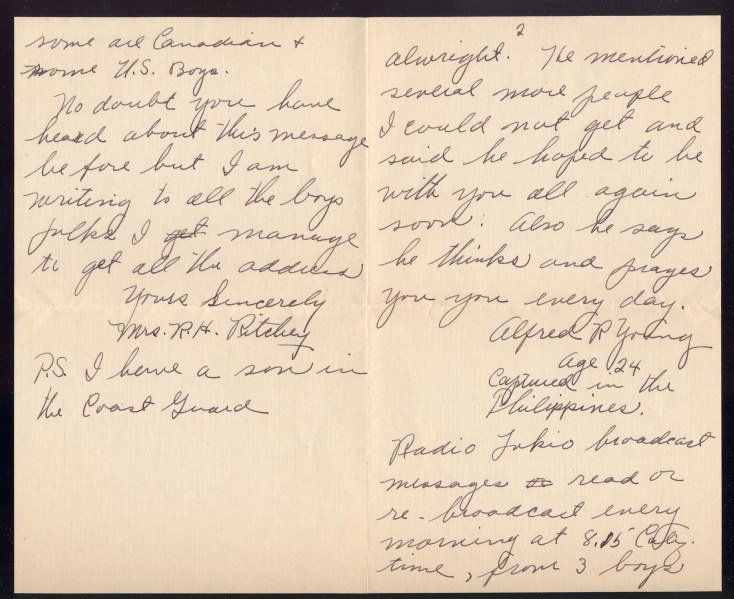 2
alwright. He mentioned
several more people
I could not get and
said he hoped to be
with you all again
soon. Also he says
he thinks and prayes
You you every day.
Alfred R Young
Age 24
Captured in the
Philippines.
Radio Tokio broadcast
messages or read or
re-broadcast every
morning at 8.15
time, from 3 boys
some are Canadian +
some U.S. Boys.
No doubt you have
heard about this message
before but I am
writing to all the boys
folks I get manage
to get all the address
Yours Sincerely
Mrs. R.H. Ritchey
P.S. I have a son in
the Coast Guard